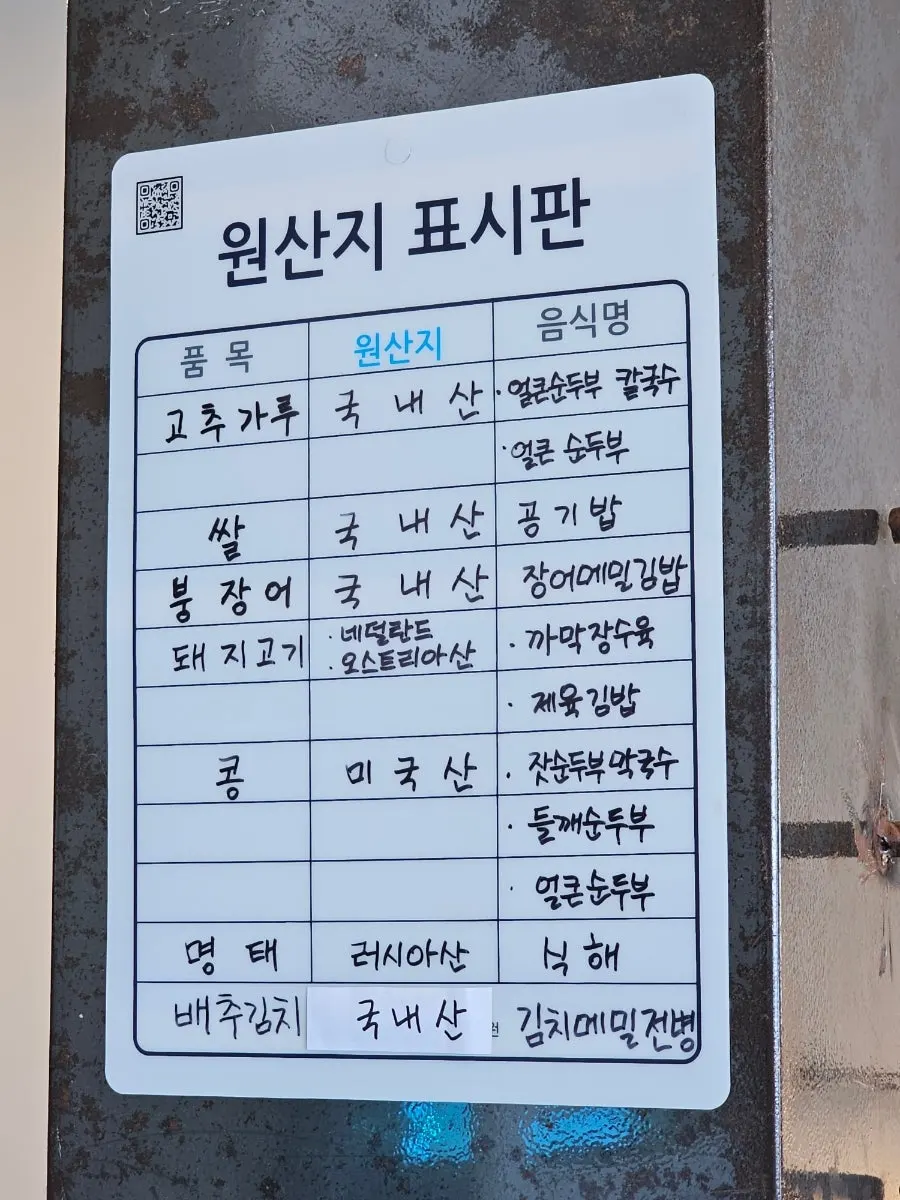 원산지 표시판
품 목 원산지 음식명
고추가루 국 내 산 · 얼큰순두부 칼국수
· 얼큰 순두부
쌀 국 내 산 공기밥
붕 장어 국 내 산 장어메밀김밥
돼지고기 · 네덜란드 · 까막장수육
· 오스트리아산
· 제육김밥
콩 미국산 · 잣순두부막국수
· 들깨순두부
· 얼큰순두부
명 태 러시아산 식해
배추김치 국내산 김치메밀전병